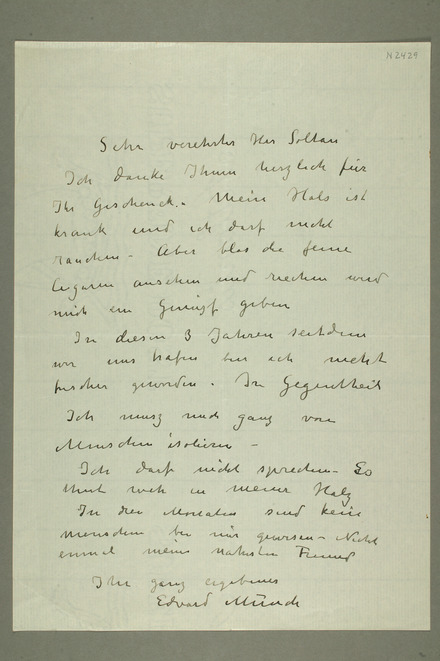 N 2429
Sehr verehrter Herr Soltau
Ich danke Ihnen herzlich für
Ihr Geschenck. Mein Hals ist
krank und ich darf nicht
rauchen – Aber blos die feine
Cigaren ansehen und riechen wird
mich ein Genusz geben
In diesen 3 Jahren seitdem
wir uns trafen bin ich nicht
frischer geworden. Im Gegentheil
Ich musz mich ganz von
Menschen isolieren –
Ich darf nicht sprechen – Es
thut weh in meiner Halz
In drei Monaten sind keine
menschen bei mir gewesen – Nicht
einmal meine nahesten Freund
Ihr ganz ergebener
Edvard Munch